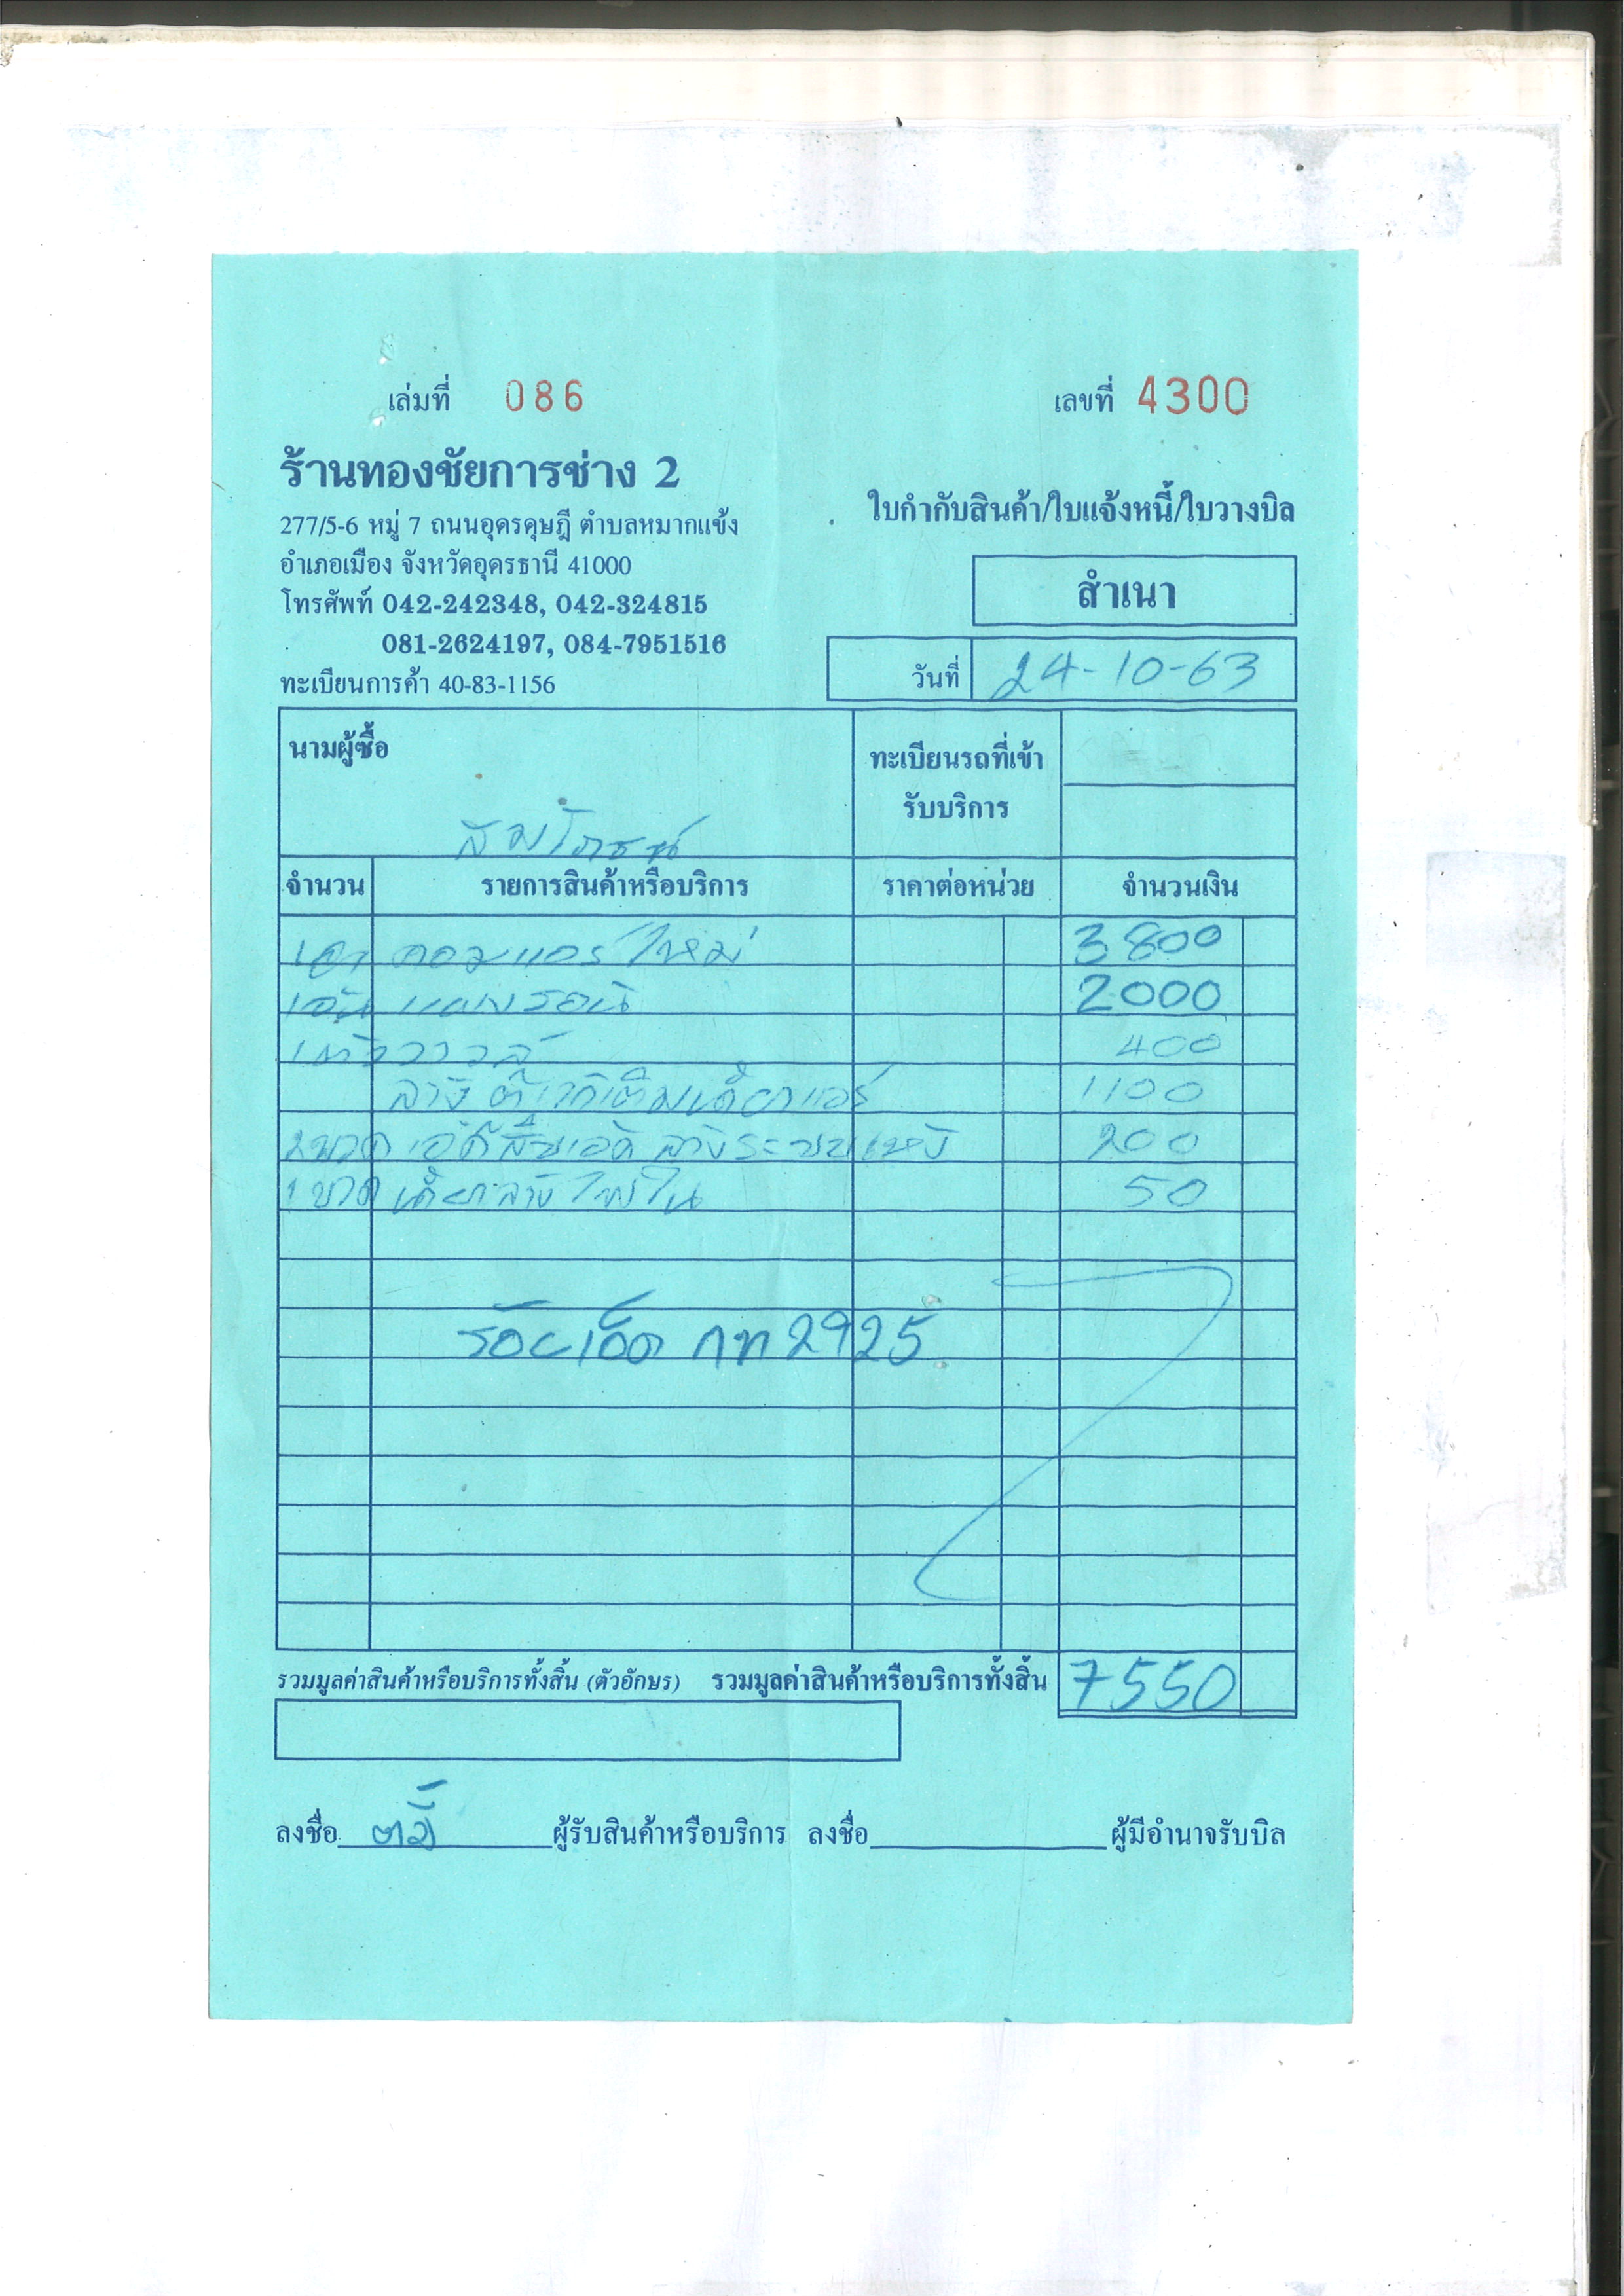 เล่มที่ 086 เลขที่ 4300
ร้านทองชัยการช่าง 2
ใบกำกับสินค้า/ใบแจ้งหนี้/ใบวางบิล
277/5-6 หมู่ 7 ถนนอุดรดุษฎี ตำบลหมากแข้ง
อำเภอเมือง จังหวัดอุดรธานี 41000
สำเนา
โทรศัพท์ 042-242348, 042-324815
081-2624197, 084-7951516
วันที่ 24-10-63
ทะเบียนการค้า 40-83-1156
นามผู้ซื้อ ทะเบียนรถที่เข้า
รับบริการ
จำนวน รายการสินค้าหรือบริการ ราคาต่อหน่วย จำนวนเงิน
คอมแอร์ใหม่ 3800
แผงร้อน 2000
วาวล์ 400
ล้างตู้ เติมน้ำยาแอร์ 1100
ล้างระบบ 200
1 ขวด 50
ร้อยเอ็ด กท 2925
รวมมูลค่าสินค้าหรือบริการทั้งสิ้น (ตัวอักษร) รวมมูลค่าสินค้าหรือบริการทั้งสิ้น 7550
ลงชื่อ ผู้รับสินค้าหรือบริการ ลงชื่อ ผู้มีอำนาจรับบิล